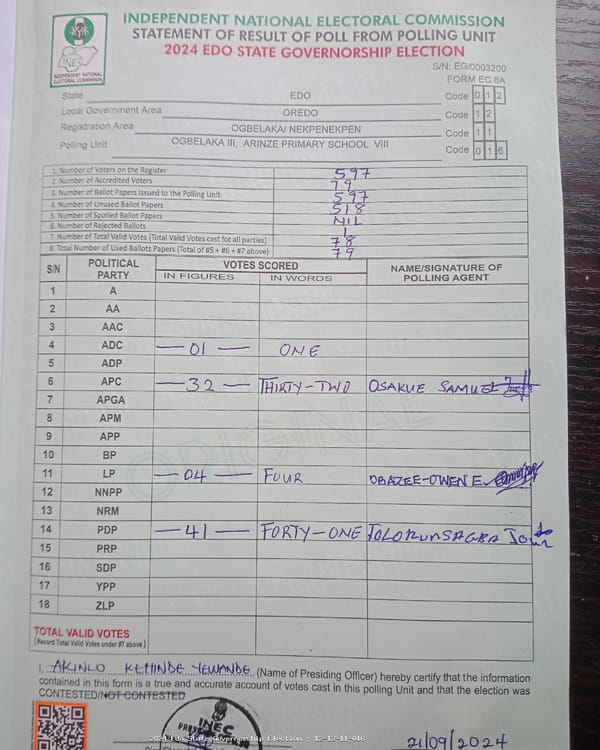 INDEPENDENT NATIONAL ELECTORAL COMMISSION
STATEMENT OF RESULT OF POLL FROM POLLING UNIT
2024 EDO STATE GOVERNORSHIP ELECTION
INEC
INDEPENDENT NATIONAL
ELECTORAL COMMISSION
S/N: EG/0003200
FORM EC 8A
State EDO Code 0 1 2
Local Government Area OREDO Code 1 2
Registration Area OGBELAKA/ NEKPENEKPEN Code 1 1
Polling Unit OGBELAKA III, ARINZE PRIMARY SCHOOL VIII Code 0 1 6
1. Number of Voters on the Register 597
2. Number of Accredited Voters 79
3. Number of Ballot Papers Issued to the Polling Unit 597
4. Number of Unused Ballot Papers 518
5. Number of Spoiled Ballot Papers NIL
6. Number of Rejected Ballots 1
7. Number of Total Valid Votes (Total Valid Votes cast for all parties) 78
8. Total Number of Used Ballots Papers (Total of #5 + #6 + #7 above) 79
S/N POLITICAL PARTY VOTES SCORED NAME/SIGNATURE OF POLLING AGENT
IN FIGURES IN WORDS
1 A
2 AA
3 AAC
4 ADC —01— ONE
5 ADP
6 APC —32— THIRTY-TWO OSAKUE SAMUEL
7 APGA
8 APM
9 APP
10 BP
11 LP —04— FOUR OBAZEE-OWEN E.
12 NNPP
13 NRM
14 PDP —41— FORTY-ONE
15 PRP
16 SDP
17 YPP
18 ZLP
ORIGINAL
TOTAL VALID VOTES
(Record Total Valid Votes under #7 above)
I, AKINLO KEHINDE YEWANDE (Name of Presiding Officer) hereby certify that the information
contained in this form is a true and accurate account of votes cast in this polling Unit and that the election was
CONTESTED/NOT CONTESTED
INEC
2024 Edo State Governorship Election : 12-12-11-016
21/09/2024